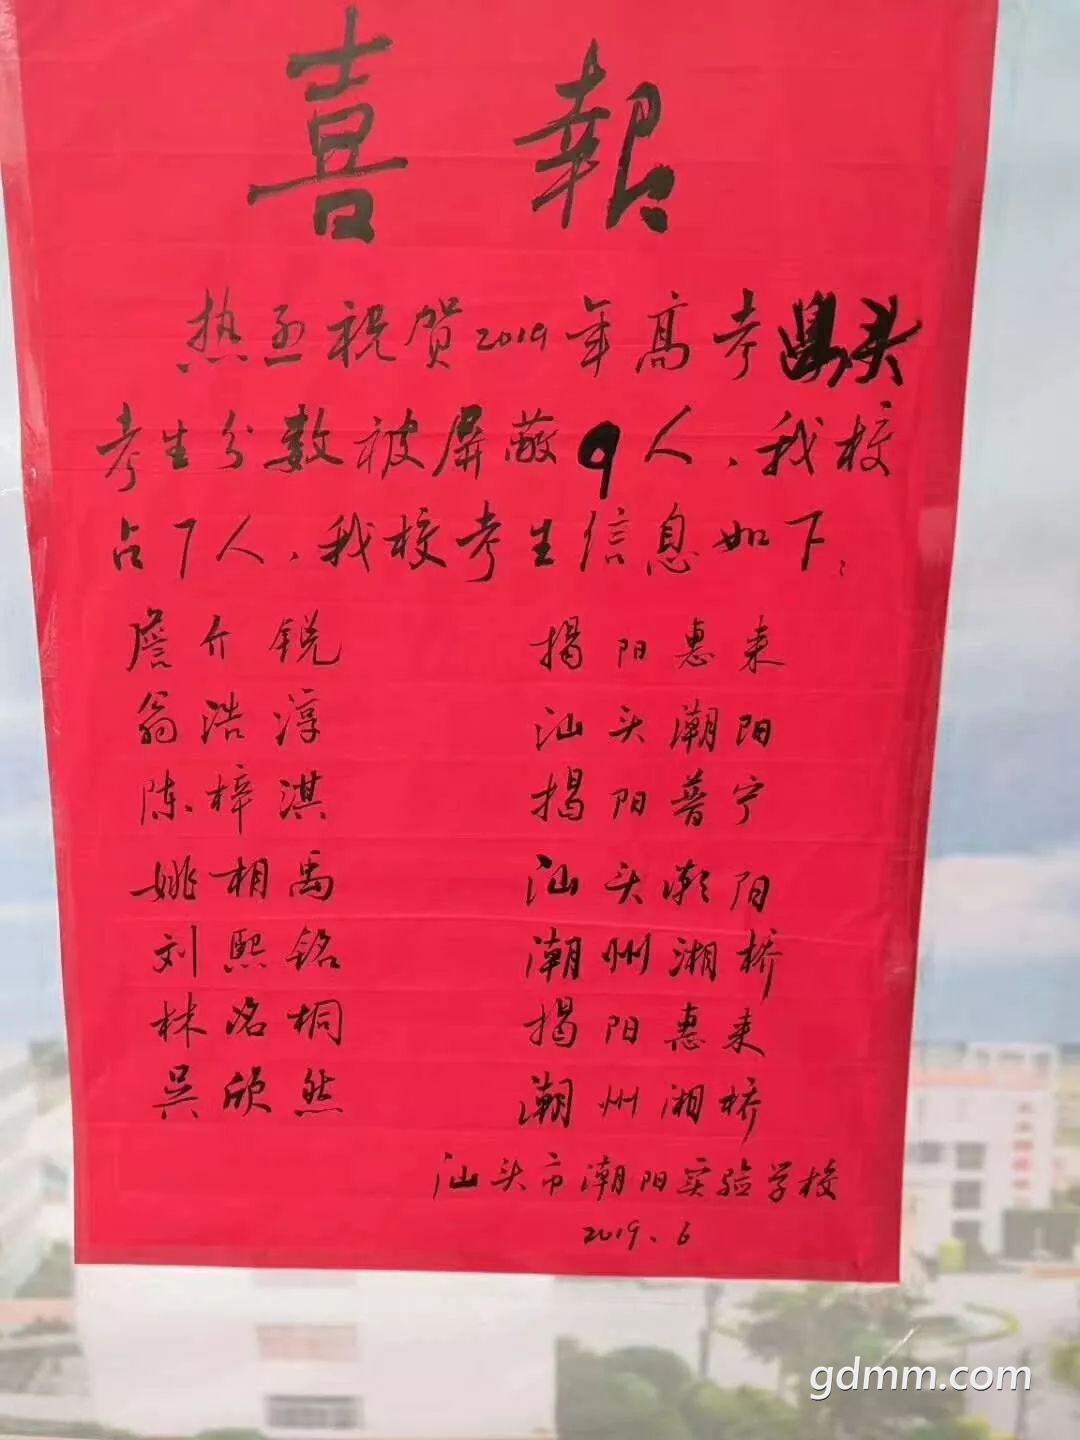 喜報
热烈祝贺2019年高考汕头
考生分数被屏蔽9人，我校
占7人，我校考生信息如下：
詹介锐 揭阳惠来
翁浩淳 汕头潮阳
陈梓淇 揭阳普宁
姚相禹 汕头潮阳
刘熙铭 潮州湘桥
林洺桐 揭阳惠来
吴欣然 潮州湘桥
汕头市潮阳实验学校
2019.6
gdmm.com